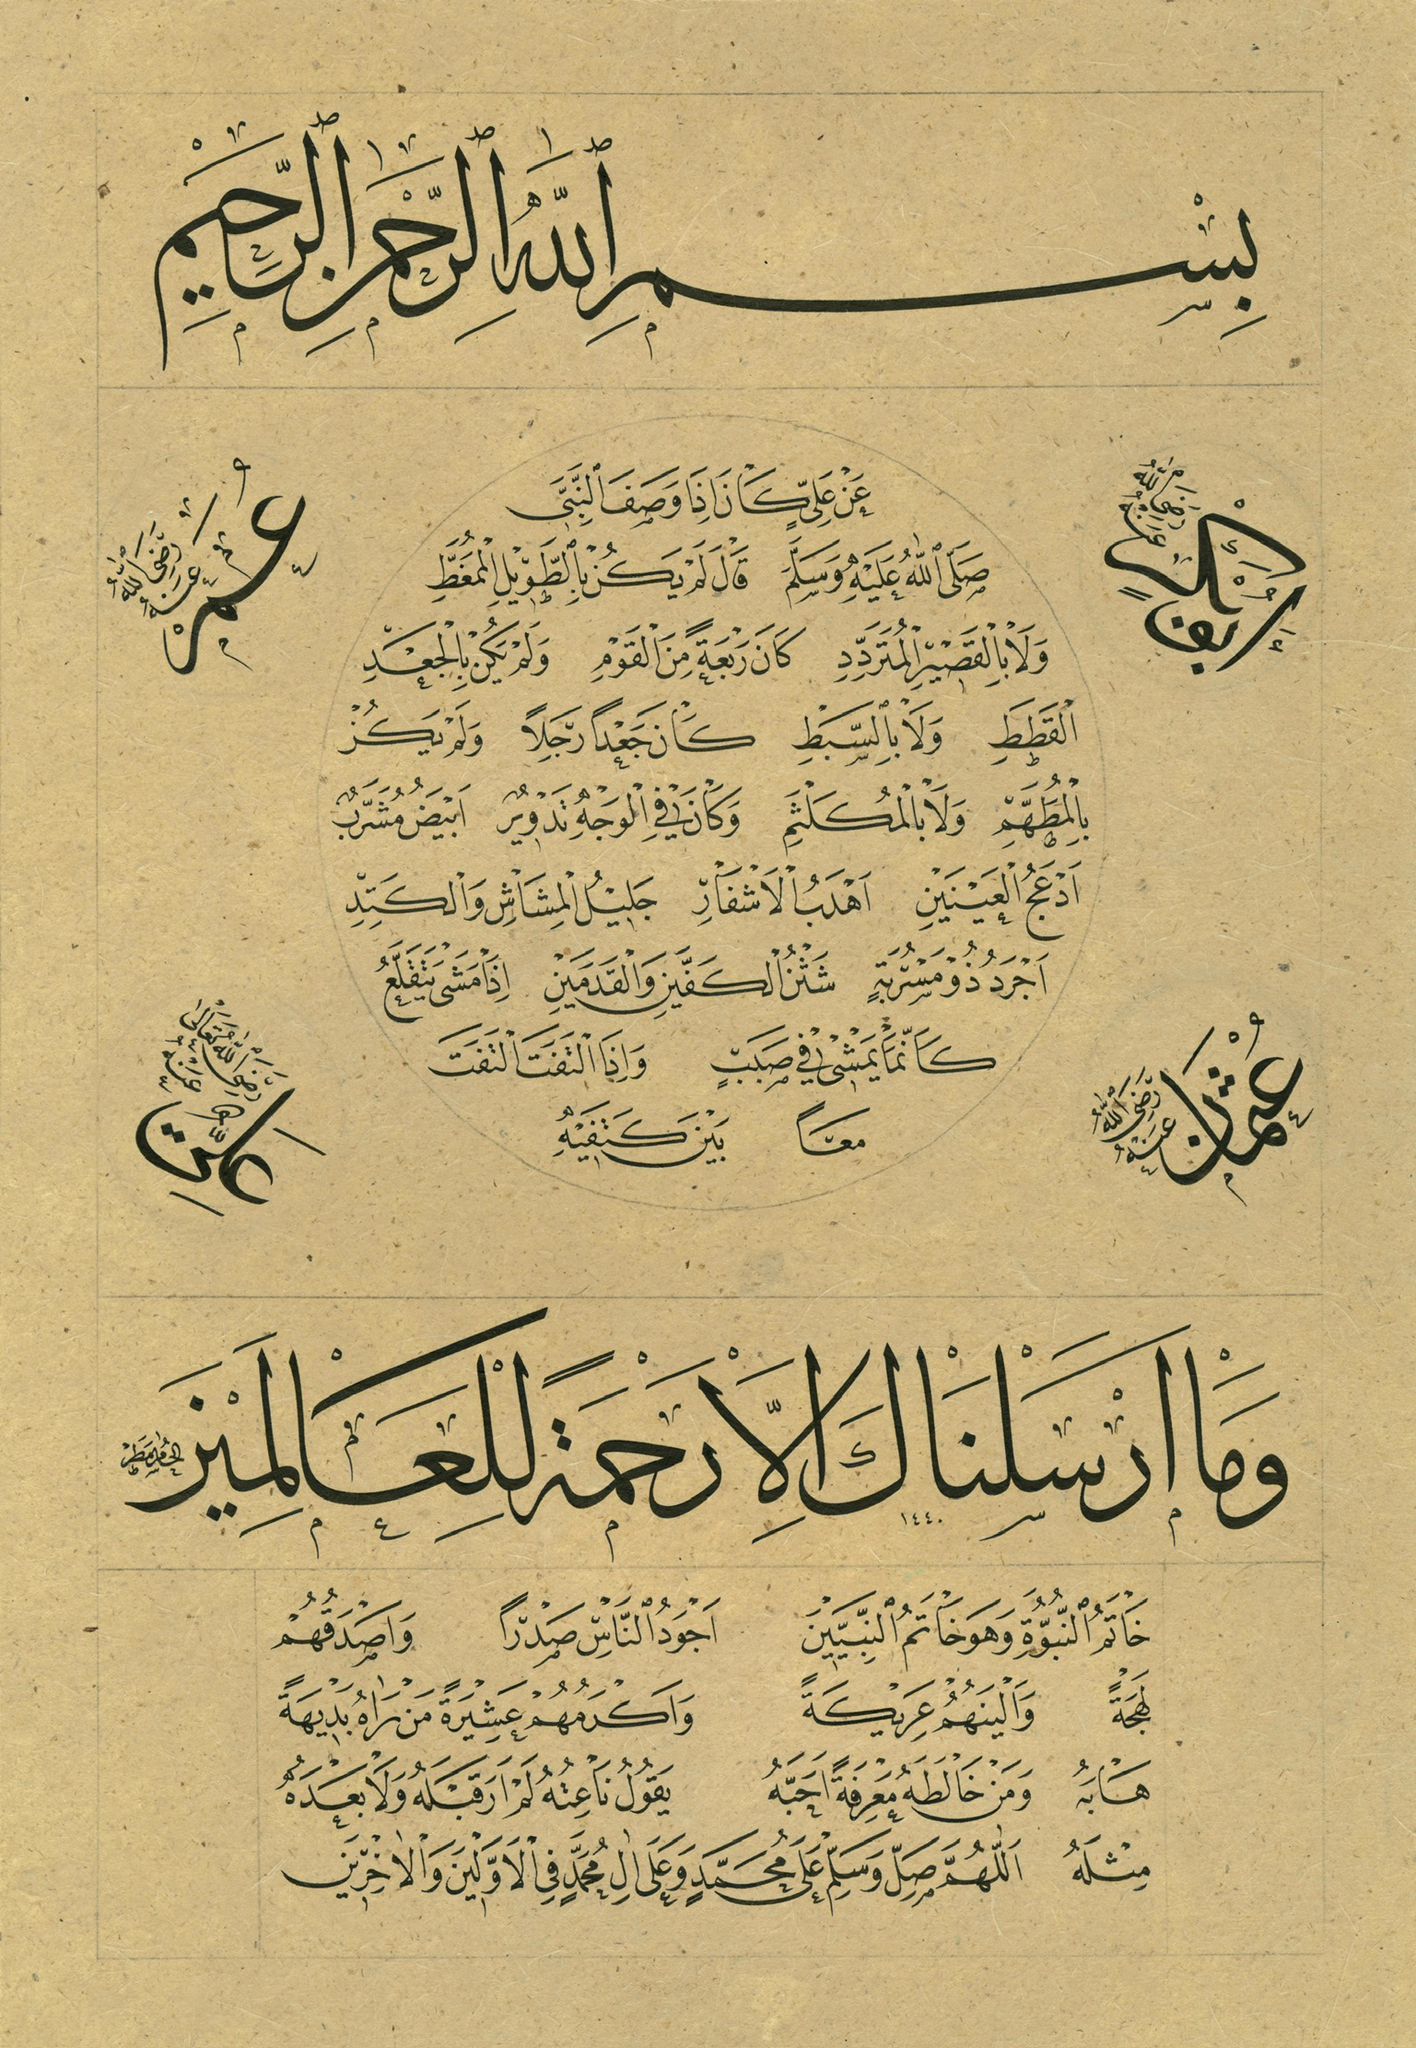 بِسْمِ ٱللّٰهِ ٱلرَّحْمٰنِ ٱلرَّحِيْمِ
عَنْ عَلِيٍّ كَانَ اِذَا وَصَفَ ٱلنَّبِيَّ
صَلَّى ٱللّٰهُ عَلَيْهِ وَسَلَّمَ قَالَ لَمْ يَكُنْ بِٱلطَّوِيْلِ الْمُمَغَّطِ
وَلَا بِالْقَصِيْرِ الْمُتَرَدِّدِ كَانَ رَبْعَةً مِنَ الْقَوْمِ وَلَمْ يَكُنْ بِالْجَعْدِ
الْقَطِطِ وَلَا بِٱلسَّبِطِ كَانَ جَعْدًا رَجِلًا وَلَمْ يَكُنْ
بِالْمُطَهَّمِ وَلَا بِالْمُكَلْثَمِ وَكَانَ فِي الْوَجْهِ تَدْوِيْرٌ اَبْيَضُ مُشَرَّبٌ
اَدْعَجُ الْعَيْنَيْنِ اَهْدَبُ الْاَشْفَارِ جَلِيْلُ الْمُشَاشِ وَالْكَتِدِ
اَجْرَدُ ذُوْ مَسْرُبَةٍ شَثْنُ الْكَفَّيْنِ وَالْقَدَمَيْنِ اِذَا مَشٰى يَتَقَلَّعُ
كَاَنَّمَا يَمْشِيْ فِيْ صَبَبٍ وَاِذَا الْتَفَتَ الْتَفَتَ
مَعًا بَيْنَ كَتِفَيْهِ
اَبِيْ بَكْرٍ رَضِيَ اللّٰهُ عَنْهُ
عُمَرُ رَضِيَ اللّٰهُ عَنْهُ
عُثْمَانُ رَضِيَ اللّٰهُ عَنْهُ
عَلِيٌّ رَضِيَ اللّٰهُ تَعَالٰى عَنْهُ
وَمَا اَرْسَلْنَاكَ اِلَّا رَحْمَةً لِلْعَالَمِيْنَ
١٤٤٠
خَاتَمُ ٱلنُّبُوَّةِ وَهُوَ خَاتَمُ ٱلنَّبِيِّيْنَ اَجْوَدُ ٱلنَّاسِ صَدْرًا وَاَصْدَقُهُمْ
لَهْجَةً وَاَلْيَنُهُمْ عَرِيْكَةً وَاَكْرَمُهُمْ عَشِيْرَةً مَنْ رَاٰهُ بَدِيْهَةً
هَابَهُ وَمَنْ خَالَطَهُ مَعْرِفَةً اَحَبَّهُ يَقُوْلُ نَاعِتُهُ لَمْ اَرَ قَبْلَهُ وَلَا بَعْدَهُ
مِثْلَهُ اَللّٰهُمَّ صَلِّ وَسَلِّمْ عَلٰى مُحَمَّدٍ وَعَلٰى اٰلِ مُحَمَّدٍ فِي الْاَوَّلِيْنَ وَالْاٰخِرِيْنَ